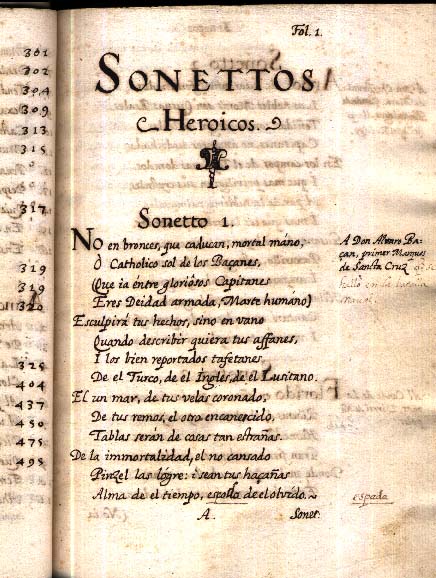 301
302
304
309
313
315
317
319
319
320
325
404
437
450
475
495
Fol. 1.
SONETTOS
Heroicos.
Sonetto 1.
NO en bronces, que caducan, mortal mano,
Ô Catholico sol de los Baçanes,
(Que ia entre gloriosos Capitanes
Eres Deidad armada, Marte humano)
Esculpirá tus hechos, sino en vano
Quando describir quiera tus affanes,
I los bien reportados tafetanes
De el Turco, de el Ingles, de el Lusitano.
El un mar, de tus velas coronado,
De tus remos, el otro encanescido,
Tablas serán de cosas tan estrañas.
De la immortalidad, el no cansado
Pinzel las logre: i sean tus haçañas
Alma de el tiempo, espada de el olvido.
A. Sonet.
A Don Alvaro Ba-
çan, primer Marques
de Sancta Cruz
espada